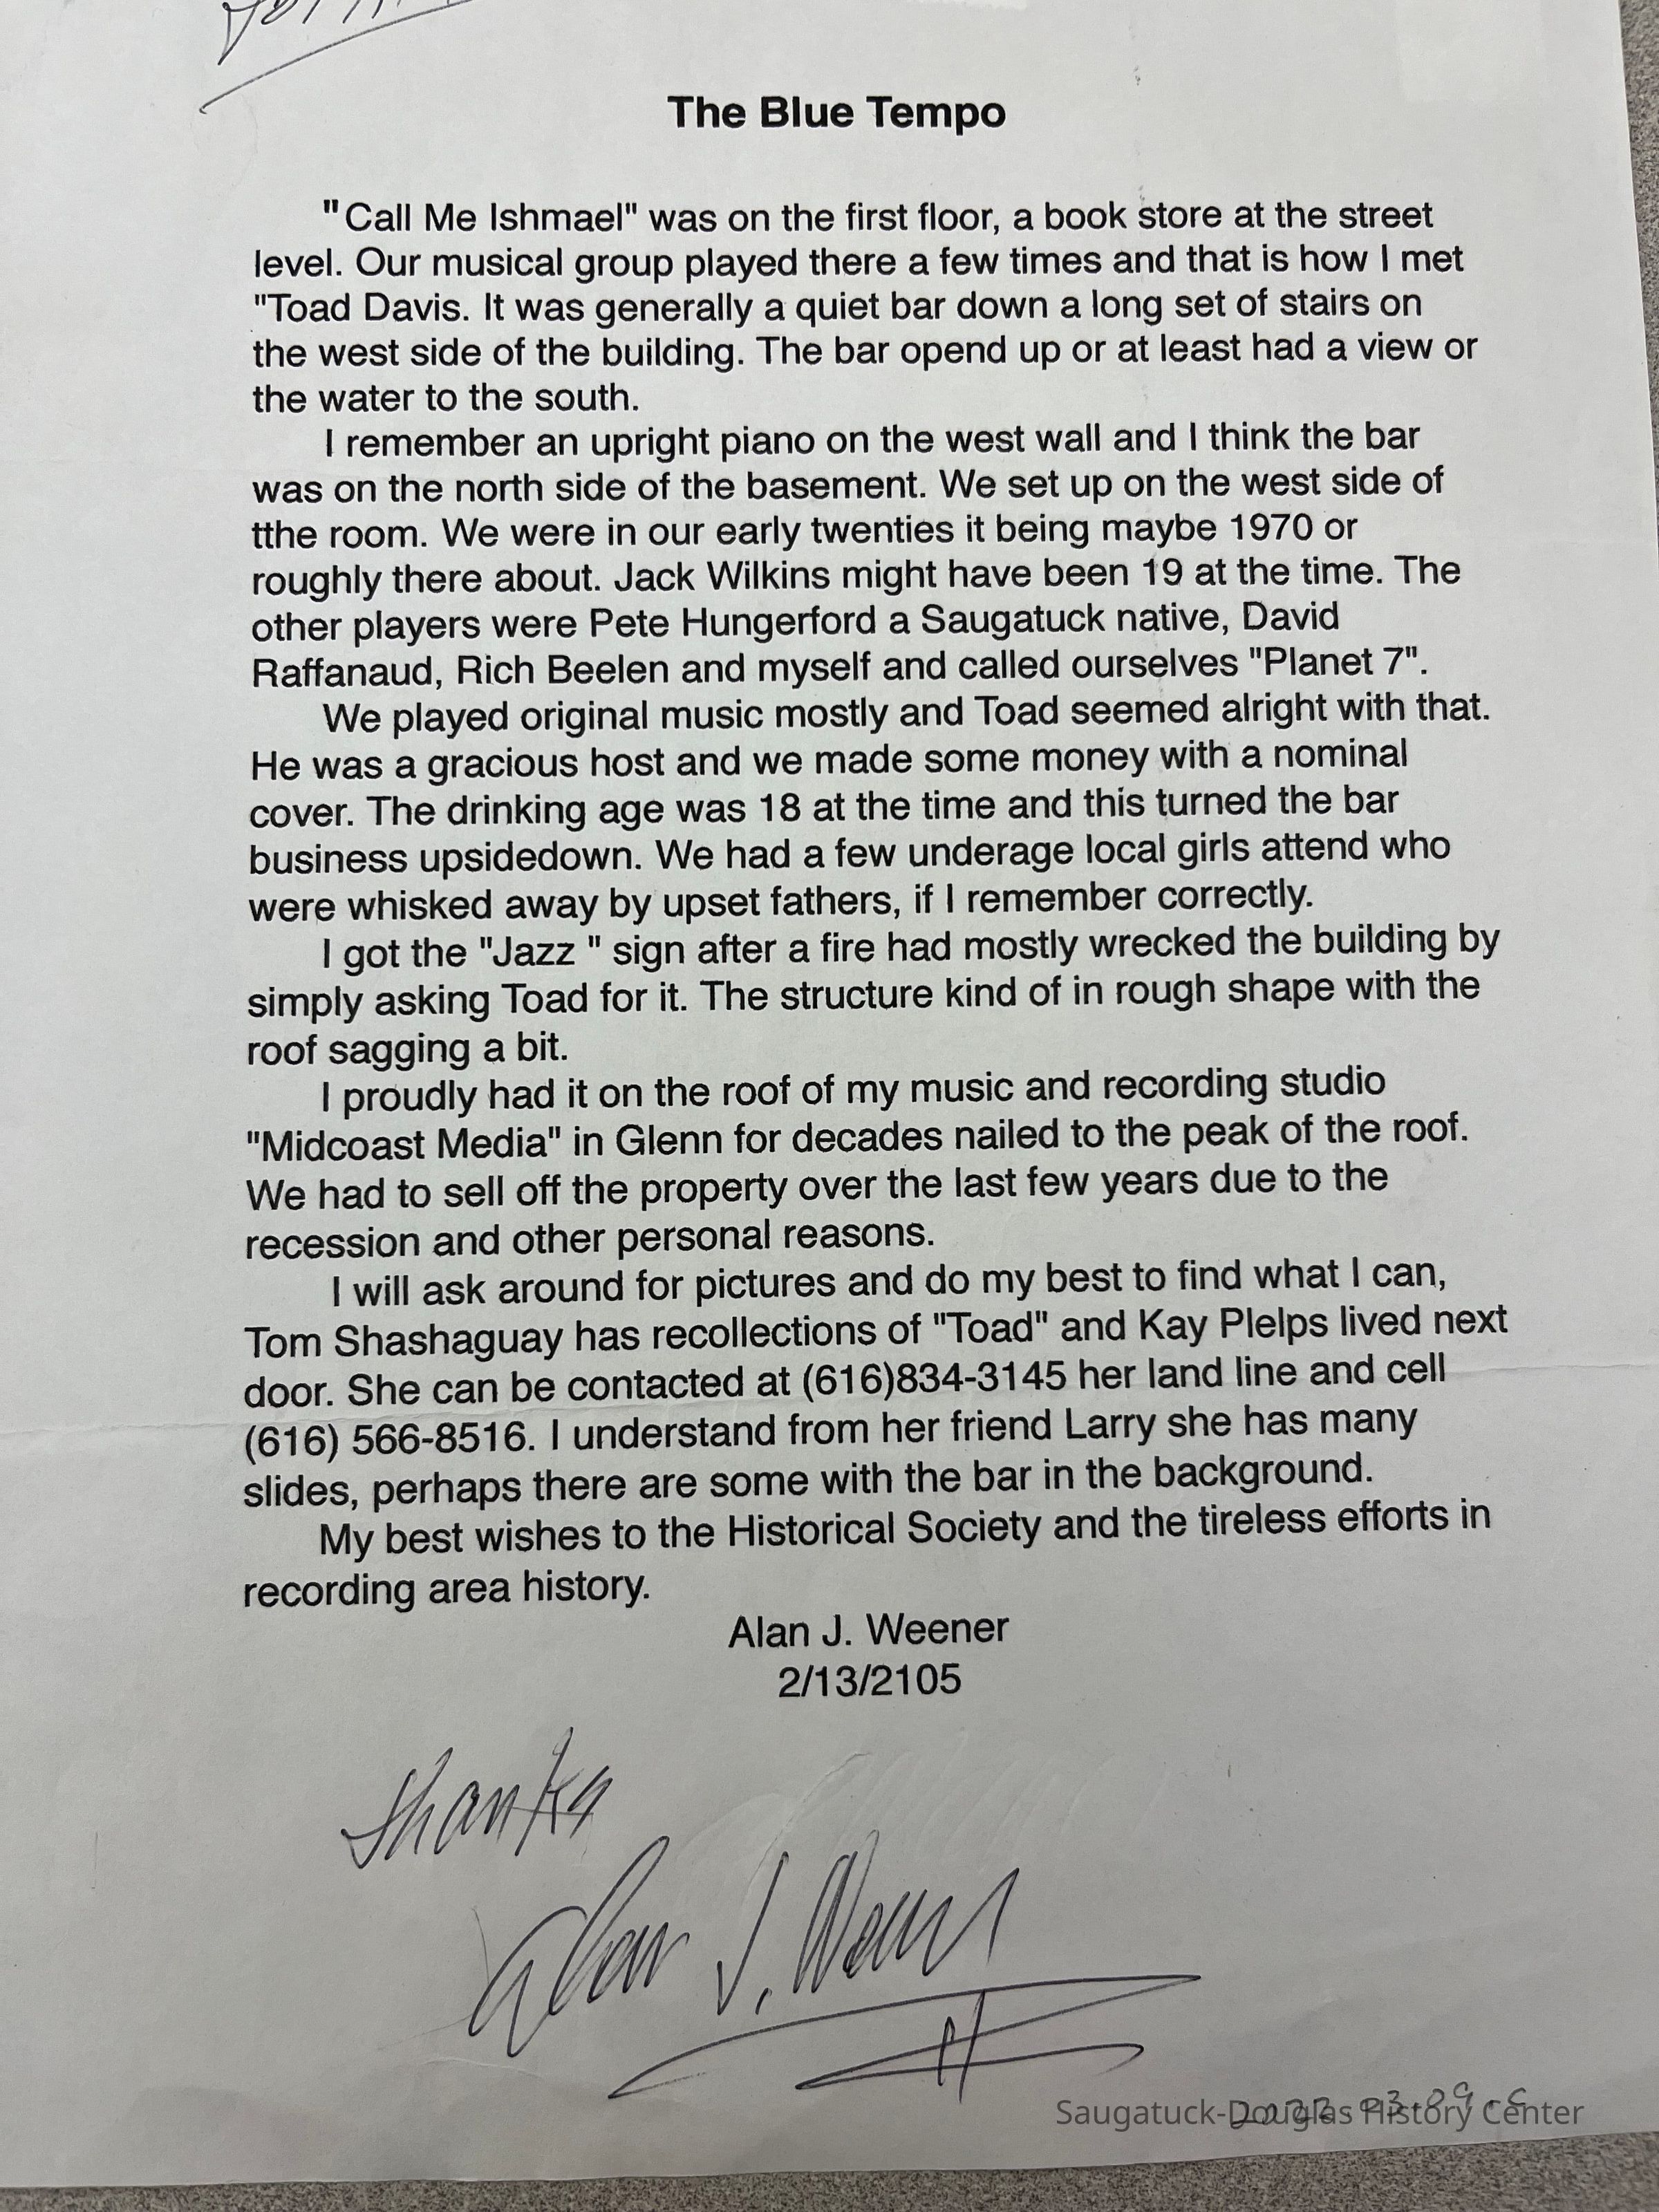 The Blue Tempo
"Call Me Ishmael" was on the first floor, a book store at the street
level. Our musical group played there a few times and that is how I met
"Toad Davis. It was generally a quiet bar down a long set of stairs on
the west side of the building. The bar opend up or at least had a view or
the water to the south.
I remember an upright piano on the west wall and I think the bar
was on the north side of the basement. We set up on the west side of
tthe room. We were in our early twenties it being maybe 1970 or
roughly there about. Jack Wilkins might have been 19 at the time. The
other players were Pete Hungerford a Saugatuck native, David
Raffanaud, Rich Beelen and myself and called ourselves "Planet 7".
We played original music mostly and Toad seemed alright with that.
He was a gracious host and we made some money with a nominal
cover. The drinking age was 18 at the time and this turned the bar
business upsidedown. We had a few underage local girls attend who
were whisked away by upset fathers, if I remember correctly.
I got the "Jazz " sign after a fire had mostly wrecked the building by
simply asking Toad for it. The structure kind of in rough shape with the
roof sagging a bit.
I proudly had it on the roof of my music and recording studio
"Midcoast Media" in Glenn for decades nailed to the peak of the roof.
We had to sell off the property over the last few years due to the
recession and other personal reasons.
I will ask around for pictures and do my best to find what I can,
Tom Shashaguay has recollections of "Toad" and Kay Plelps lived next
door. She can be contacted at (616)834-3145 her land line and cell
(616) 566-8516. I understand from her friend Larry she has many
slides, perhaps there are some with the bar in the background.
My best wishes to the Historical Society and the tireless efforts in
recording area history.
Alan J. Weener
2/13/2105
Thanks
Alan J. Weener
Saugatuck-Douglas History Center